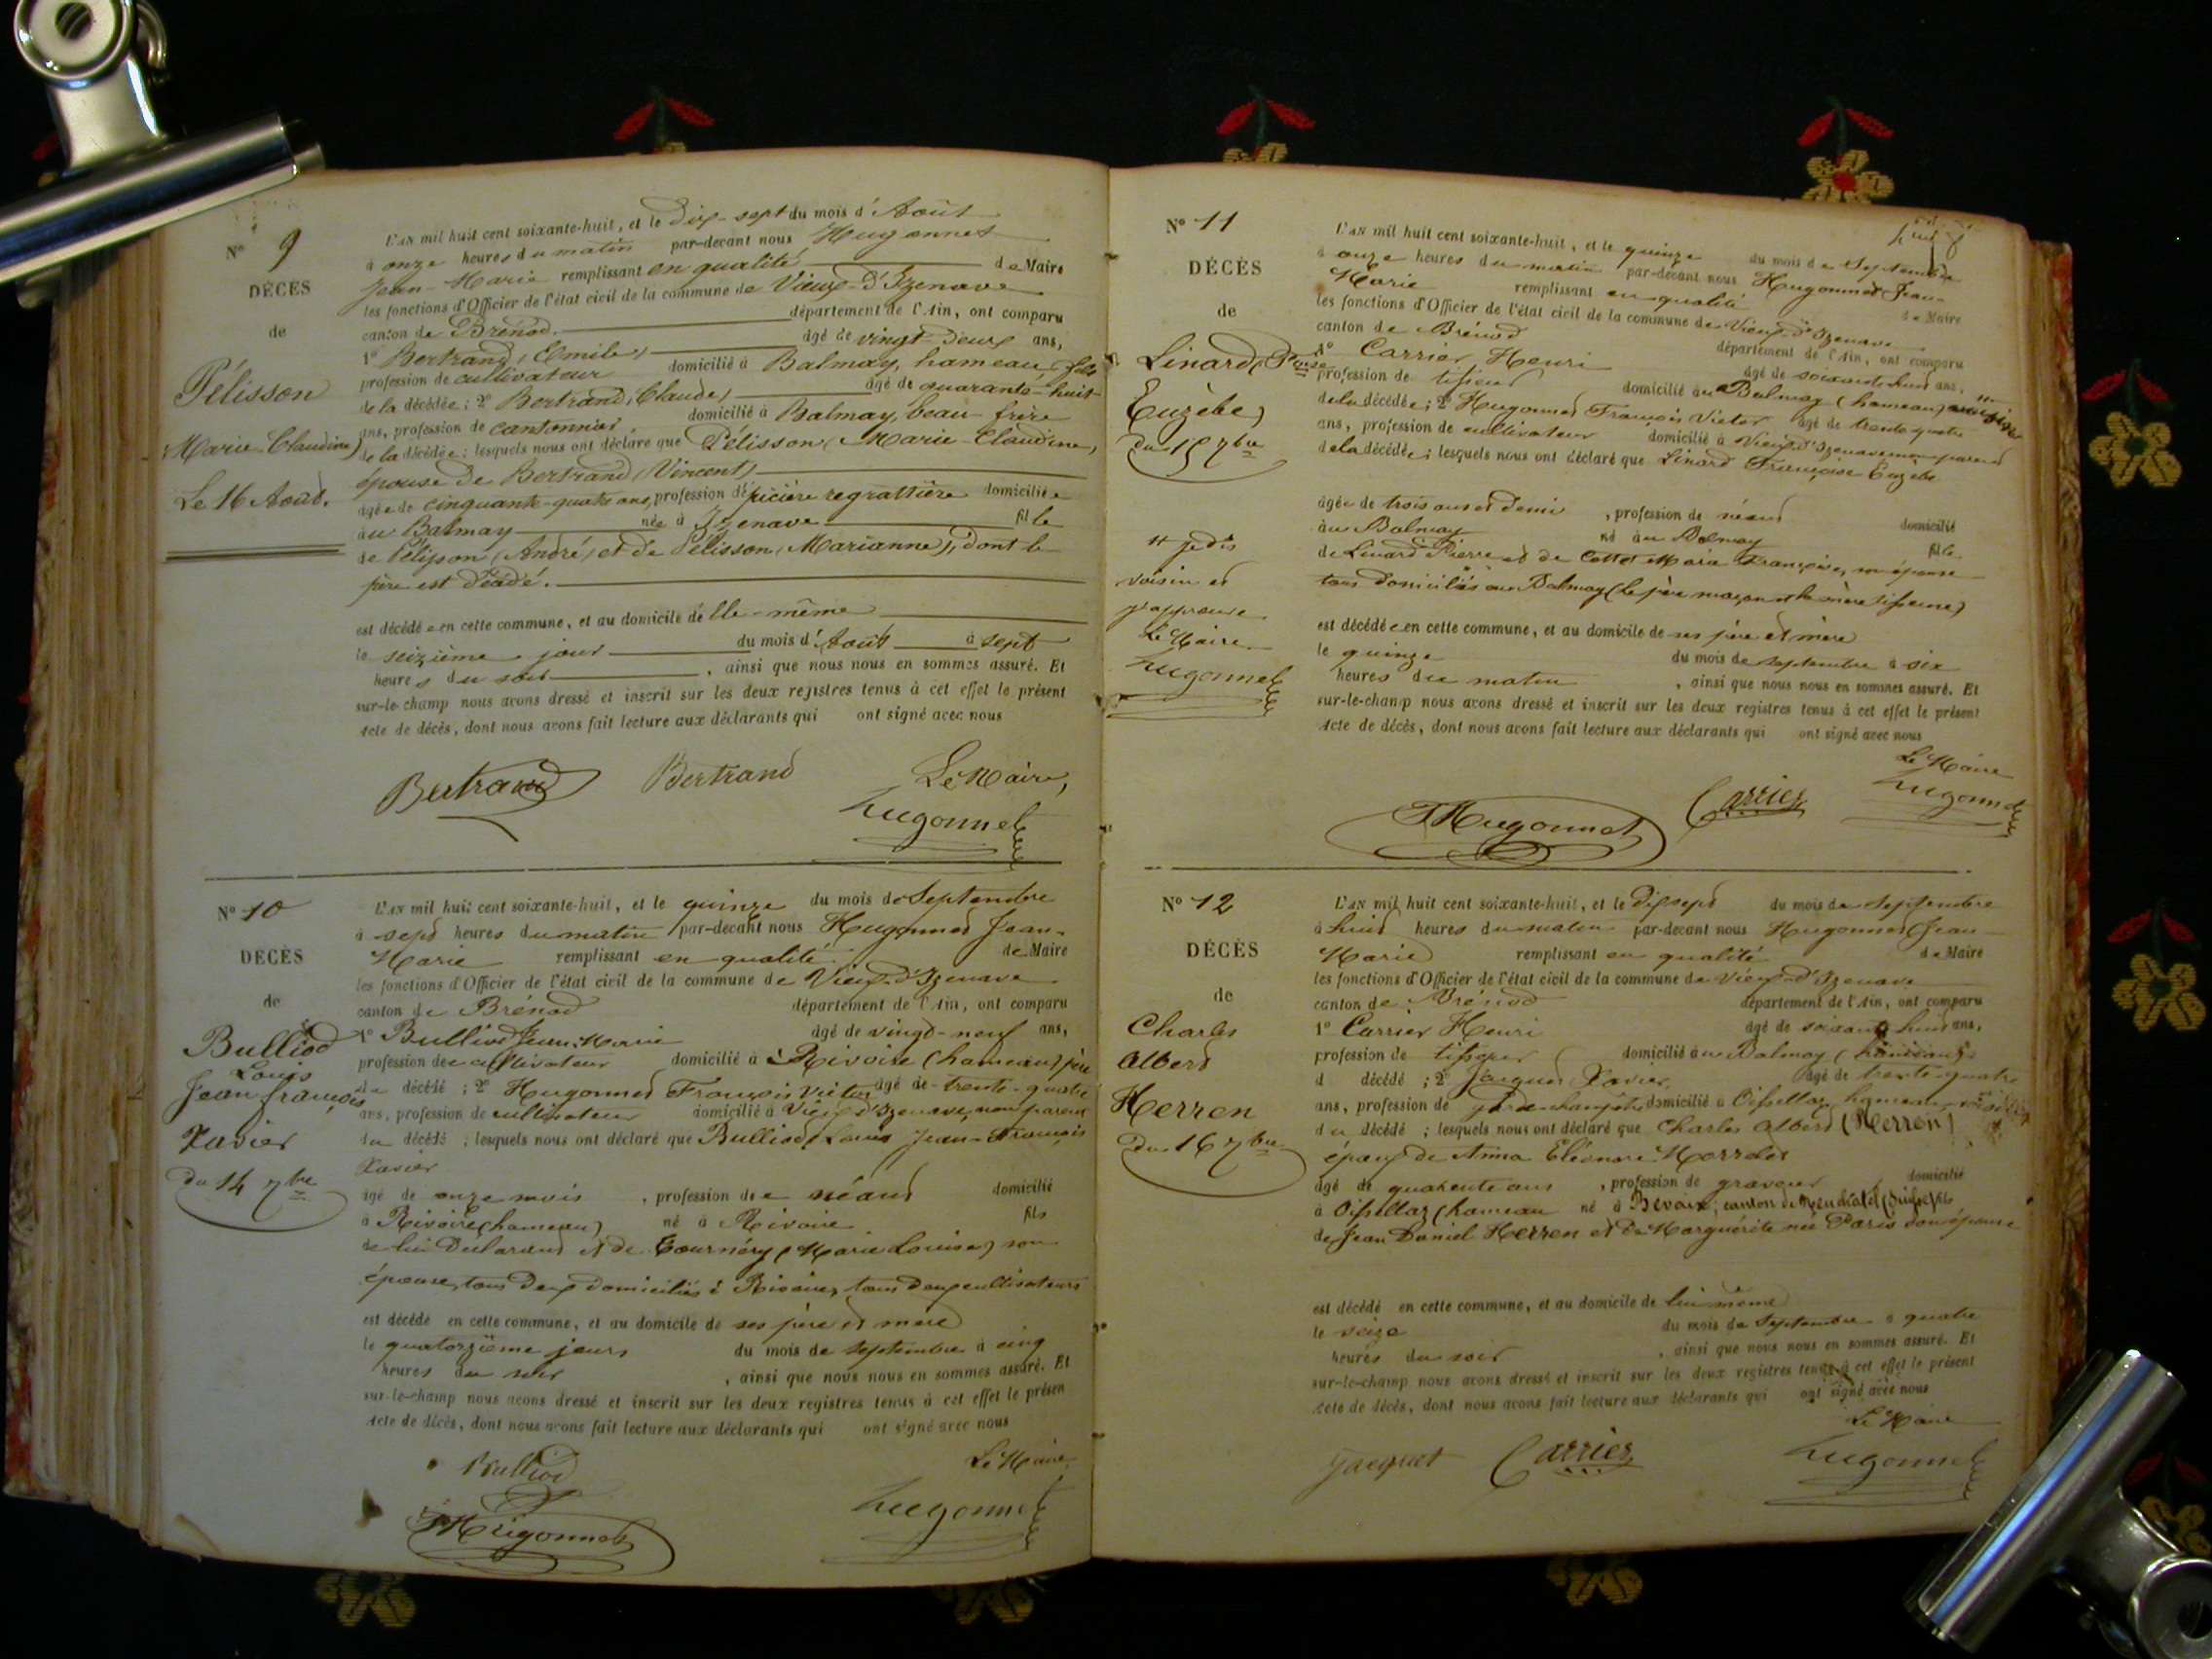 N° 9
DÉCÈS
de
Pélisson
Marie-Claudine
Le 16 Août.
L'an mil huit cent soixante-huit, et le Dix-sept du mois d'Août
à onze heures du matin par-devant nous Hugonnet
Jean-Marie remplissant en qualité de Maire
les fonctions d'Officier de l'état civil de la commune de Vieux-d'Izenave
canton de Brénod. département de l'Ain, ont comparu
1° Bertrand, (Emile) âgé de vingt-deux ans,
profession de cultivateur domicilié à Balmay, hameau, fils
de la décédée ; 2° Bertrand, (Claude) âgé de quarante-huit
ans, profession de cantonnier domicilié à Balmay, beau-frère
de la décédée ; lesquels nous ont déclaré que Pélisson (Marie-Claudine,
épouse de Bertrand (Vincent)
âgée de cinquante-quatre ans, profession d'épicière regrattière domiciliée
au Balmay née à Izenave fille
de Pélisson (André) et de Pélisson (Marianne), dont le
père est décédé.
est décédée en cette commune, et au domicile d'elle-même
le seizième jour du mois d'Août à sept
heures du soir, ainsi que nous nous en sommes assuré. Et
sur-le-champ nous avons dressé et inscrit sur les deux registres tenus à cet effet le présent
Acte de décès, dont nous avons fait lecture aux déclarants qui ont signé avec nous
Bertrand Bertrand Le Maire,
Hugonnet
N° 10
DÉCÈS
de
Bulliod
Louis
Jean françois
Xavier
du 14 7bre
L'an mil huit cent soixante-huit, et le quinze du mois de Septembre
à sept heures du matin par-devant nous Hugonnet Jean-
Marie remplissant en qualité de Maire
les fonctions d'Officier de l'état civil de la commune de Vieux-d'Izenave
canton de Brénod département de l'Ain, ont comparu
1° Bulliod Jean-Marie âgé de vingt-neuf ans,
profession de cultivateur domicilié à Rivoire (hameau) père
du décédé ; 2° Hugonnet François Victor âgé de trente-quatre
ans, profession de cultivateur domicilié à Vieux d'Izenave, non parent
du décédé ; lesquels nous ont déclaré que Bulliod Louis Jean-François
Xavier
âgé de onze mois, profession de néant domicilié
à Rivoire (hameau) né à Rivoire fils
de lui Déclarant et de Tournéry (Marie Louise) son
épouse, tous deux domiciliés à Rivoire, tous deux cultivateurs
est décédé en cette commune, et au domicile de ses père et mère
le quatorzième jours du mois de septembre à cinq
heures du soir, ainsi que nous nous en sommes assuré. Et
sur-le-champ nous avons dressé et inscrit sur les deux registres tenus à cet effet le présent
Acte de décès, dont nous avons fait lecture aux déclarants qui ont signé avec nous
Bulliod Le Maire,
Hugonnet Hugonnet
N° 11
DÉCÈS
de
Linard
Euzèbe
du 15 7bre
voisin et
j'approuve
Le Maire
Hugonnet
L'an mil huit cent soixante-huit, et le quinze du mois de Septembre
à onze heures du matin par-devant nous Hugonnet Jean-
Marie remplissant en qualité de Maire
les fonctions d'Officier de l'état civil de la commune de Vieux-d'Izenave
canton de Brénod département de l'Ain, ont comparu
1° Carrier Henri âgé de soixante huit ans,
profession de tisseur domicilié au Balmay (hameau)
de la décédée ; 2° Hugonnet François Victor âgé de trente quatre
ans, profession de cultivateur domicilié à Vieux d'Izenave non parent
de la décédée ; lesquels nous ont déclaré que Linard Françoise Euzèbe
âgée de trois ans et demi, profession de néant domicilié
au Balmay né au Balmay fille
de Linard Pierre et de Cottet Marie Françoise, son épouse
tous domiciliés au Balmay (le père maçon et la mère tisseuse)
est décédée en cette commune, et au domicile de ses père et mère
le quinze du mois de Septembre à six
heures du matin, ainsi que nous nous en sommes assuré. Et
sur-le-champ nous avons dressé et inscrit sur les deux registres tenus à cet effet le présent
Acte de décès, dont nous avons fait lecture aux déclarants qui ont signé avec nous
Le Maire
Hugonnet Carrier Hugonnet
N° 12
DÉCÈS
de
Charles
Albert
Herren
du 16 7bre
L'an mil huit cent soixante-huit, et le dix sept du mois de Septembre
à huit heures du matin par-devant nous Hugonnet Jean-
Marie remplissant en qualité de Maire
les fonctions d'Officier de l'état civil de la commune de Vieux-d'Izenave
canton de Brénod département de l'Ain, ont comparu
1° Carrier Henri âgé de soixante huit ans,
profession de tisseur domicilié au Balmay (hameau)
d décédé ; 2° Jacquet Xavier âgé de trente quatre
ans, profession de garde champêtre domicilié à Oisellaz hameau, voisin
du décédé ; lesquels nous ont déclaré que Charles Albert (Herren)
époux de Anna Eléonore
âgé de quarente ans, profession de graveur domicilié
à Oisellaz (hameau né à Bevaix, canton de Neuchâtel (Suisse) fils
de Jean Daniel Herren et de Marguérite née Paris son épouse
est décédé en cette commune, et au domicile de lui même
le seize du mois de Septembre à quatre
heures du soir, ainsi que nous nous en sommes assuré. Et
sur-le-champ nous avons dressé et inscrit sur les deux registres tenus à cet effet le présent
Acte de décès, dont nous avons fait lecture aux déclarants qui ont signé avec nous
Le Maire
Jacquet Carrier Hugonnet